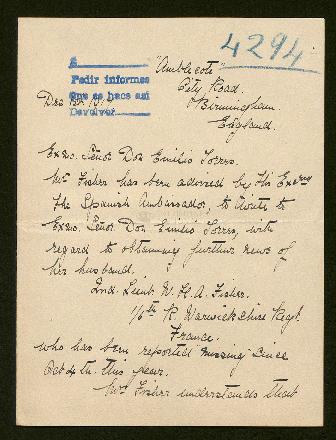 4294
"Amblecote"
A
City Road.
Pedir informes
Que se haca asi
Devolver
Birmingham
England.
Exmo. Señor Don Emilio Torres.
Mrs Fisher has been advised by His Excncy
the Spanish Ambassador, to write to
Exmo. Señor Don Emilio Torres, with
regard to obtaining further news of
her husband.
2nd. Lieut. W. H. A. Fisher.
1/6th R. Warwickshire Regt.
France.
who has been reported missing since
Oct 4th. this year.
Mrs Fisher understands that